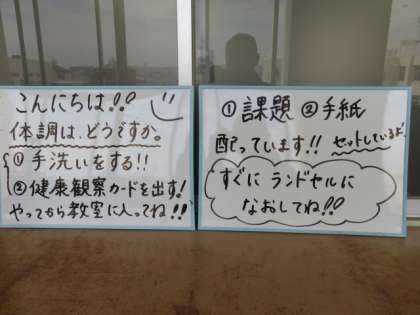 こんにちは!!
体調は、どうですか。
① 手洗いをする!!
② 健康観察カードを出す!
やってから教室に入ってね!!
① 課題 ② 手紙
配っています!! セットしているよ!
すぐに ランドセルに
なおしてね!!